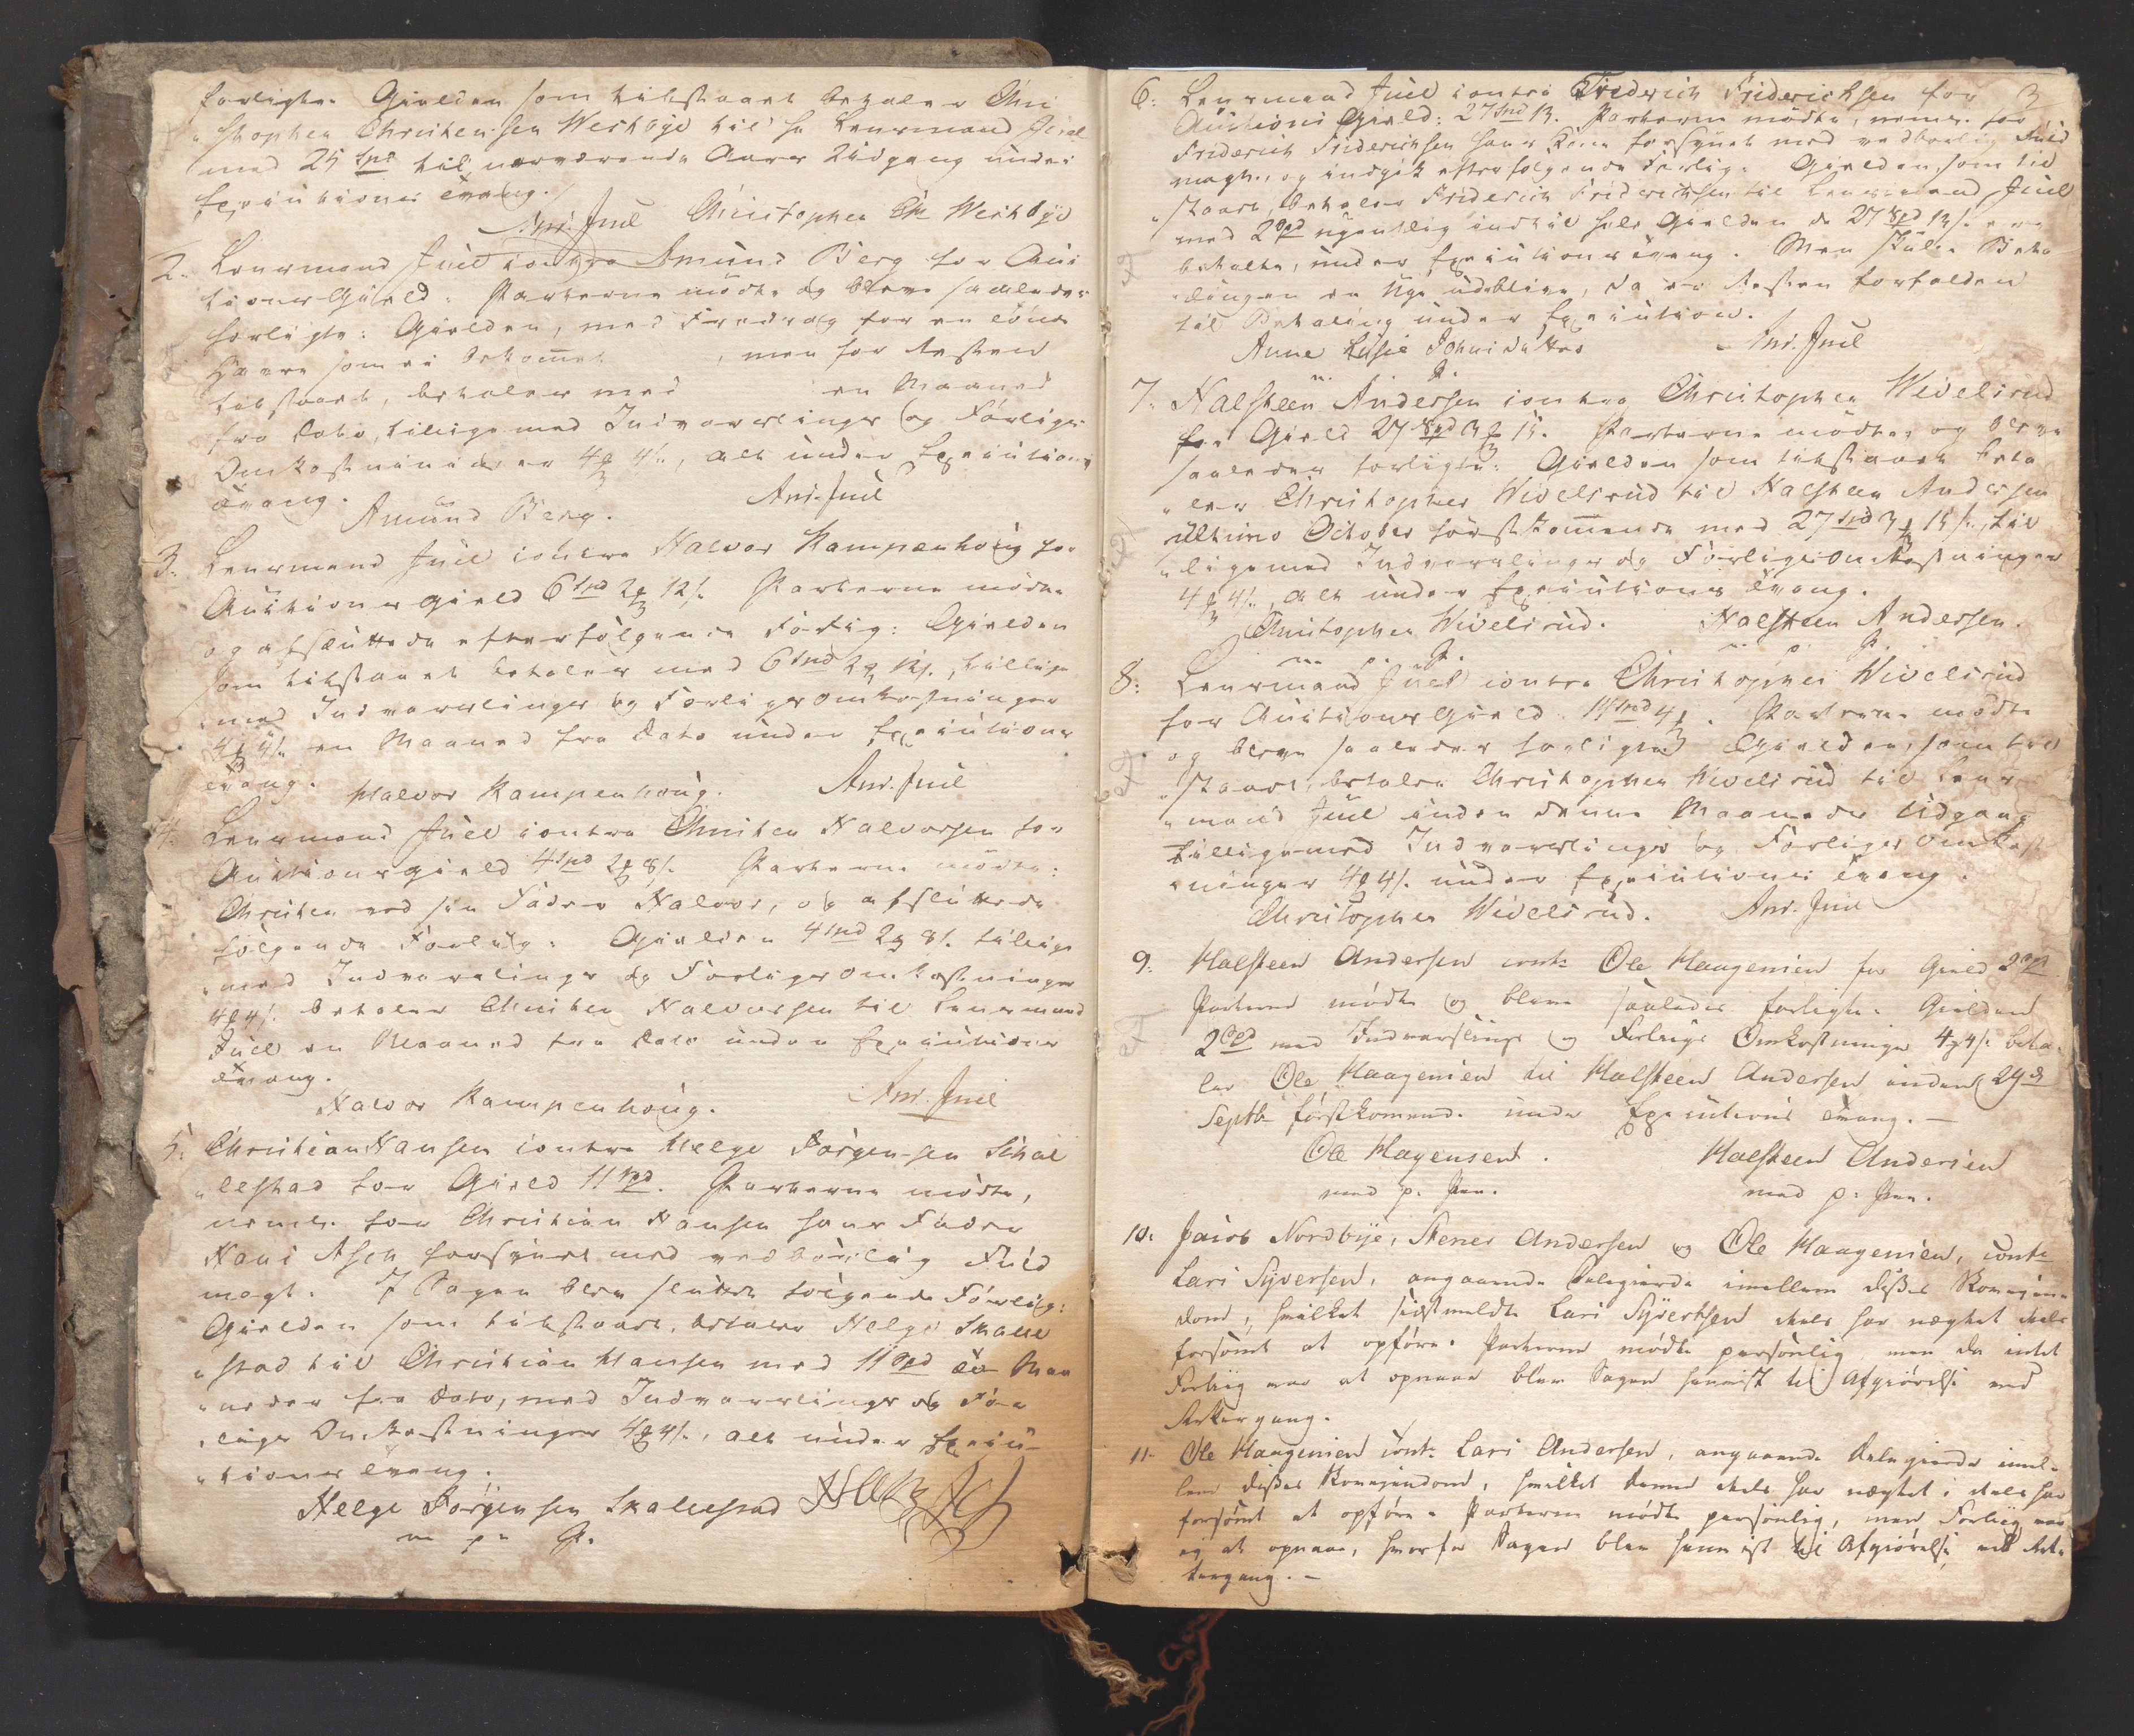 forligte. Gielden som tilstaaet betaler Chri
"stopher Christensen Westbye til hr Lensmand Juel
med 25 Spd til nærværende Aars Udgang under
Executions tvang.
Anr. Juel Christopher Ch Westbye
2. Lensmand Juel contra Amund Berg for Auc
tions Gield. Parterne mødte og bleve saaledes
forligte: Gielden, med Fradrag for en
som ei bekommet , men for Resten
tilstaaet, betales med en Maaned
fra Dato, tillige med Indvarslings og Forligs
Omkostninger 4 ₰ 4/., alt under Executions
tvang.
Amund Berg. Anr. Juel
3. Lensmand Juel contra Halvor Kampenhoug for
Auctions gield 6 Spd 2 ₰ 12/. Parterne mødte
og afsluttede efterfølgende Forlig: Gielden
som tilstaaet betales med 6 Spd 2 ₰ 12/., tillige
"med Indvarslings og Forligsomkostninger
4 ₰ 4/. en Maaned fra Dato under Executions
tvang. Halvor Kampenhoug. Anr. Juel
4. Lensmand Juel contra Christen Halvorsen for
Auctionsgield 4 Spd 2 ₰ 8/. Parterne mødte:
Christen ved sin Fader Halvor, og afsluttede
følgende Forlig: Gielden 4 Spd 2 ₰ 8/. tillige
"med Indvarslings og Forligsomkostninger
4 ₰ 4/. betaler Christen Halvorsen til Lensmand
Juel en Maaned fra Dato under Executions
tvang.
Halvor Kampenhoug. Anr. Juel
5. Christian Hansen contra Helge Jørgensen Schal
"lestad for Gield 11 Spd. Parterne mødte,
neml. for Christian Hansen hans Fader
Hans Asch forsynet med vedbørlig Fuld
magt. I Sagen blev sluttet følgende Forlig:
Gielden som tilstaaet, betaler Helge Skalle
"stad til Christian Hansen med 11 Spd to Maa
"neder fra Dato, med Indvarslings og For
"ligs Omkostninger 4 ₰ 4/., alt under Execu-
"tions tvang.
Helge Jørgensen Skallestad
m p P.
3
6: Lensmand Juel contra Friderich Friderichsen for
Auctions Gield: 27 Spd 12. Parterne mødte, neml. for
Friderich Friderichsen hans Kone forsynet med vedbørlig Fuld
magt, og indgik efterfølgende Forlig: Gielden som til
"staaet, betaler Friderich Friderichsen til Lensmand Juel
med 2 Spd ugentlig indtil hele Gielden de 27 Spd 12/. er
betalte, under Executions tvang. Men skulde Beta
"lingen en Uge udeblive, da er Resten forfalden
til Betaling under Execution.
Anne Lisie Johnsdatter Anr. Juel
7. Halsteen Andersen contra Christopher Wivelsrud
for Gield 27 Spd 3 ₰ 15. Parterne mødte, og bleve
saaledes forligte: Gielden som tilstaaet beta
"ler Christopher Wivelsrud til Halsteen Andersen
ultimo October førstkommende med 27 Spd 3 ₰ 15/., til
"lige med Indvarslings og Forligsomkostninger
4 ₰ 4/., alt under Executions tvang.
Christopher Wivelsrud. Halsteen Andersen.
m p. P. m p. P.
8: Lensmand Juel contra Christopher Wivelsrud
for Auctions Gield 14 Spd 4 ₰. Parterne mødte
og bleve saaledes forligte: Gielden, som til
"staaet, betaler Christopher Wivelsrud til Lens
"mand Juel inden denne Maaneds Udgang
tilligemed Indvarslings og Forligs Omkost
"ninger 4 ₰ 4/. under Executions tvang.
Christopher Wivelsrud. Anr. Juel
9: Halsteen Andersen contr Ole Haagensen for Gield 2 Spd
Parterne mødte og bleve saaledes forligte: Gielden
2 Spd med Indvarslings og Forligs Omkostninger 4 ₰ 4/. beta-
ler Ole Haagensen til Halsteen Andersen inden 29de
Septb førstkommende under Executions tvang. —
Ole Hagensen. Halsteen Andersen
med p. Pen. med p. Pen.
10. Jacob Nordbye, Stener Andersen og Ole Haagensen, contr
Lars Syversen, angaaende Delegierde imellem disses Eiendom
, hvilket sidstmeldte Lars Syvertsen dels har nægtet dels
forsømt at opføre. Parterne mødte personlig men da intet
Forlig var at opnaae blev Sagen henvist til Afgiørelse ved
Rettergang.
11- Ole Haagensen contr Lars Andersen, angaaende Delegierde imel-
lem disses Eiendom, hvilket denne dels har nægtet, dels har
forsømt at opføre. Parterne mødte personlig, men Forlig var
ej at opnaae, hvorfor Sagen blev henvist til Afgiørelse ved Ret-
tergang. —